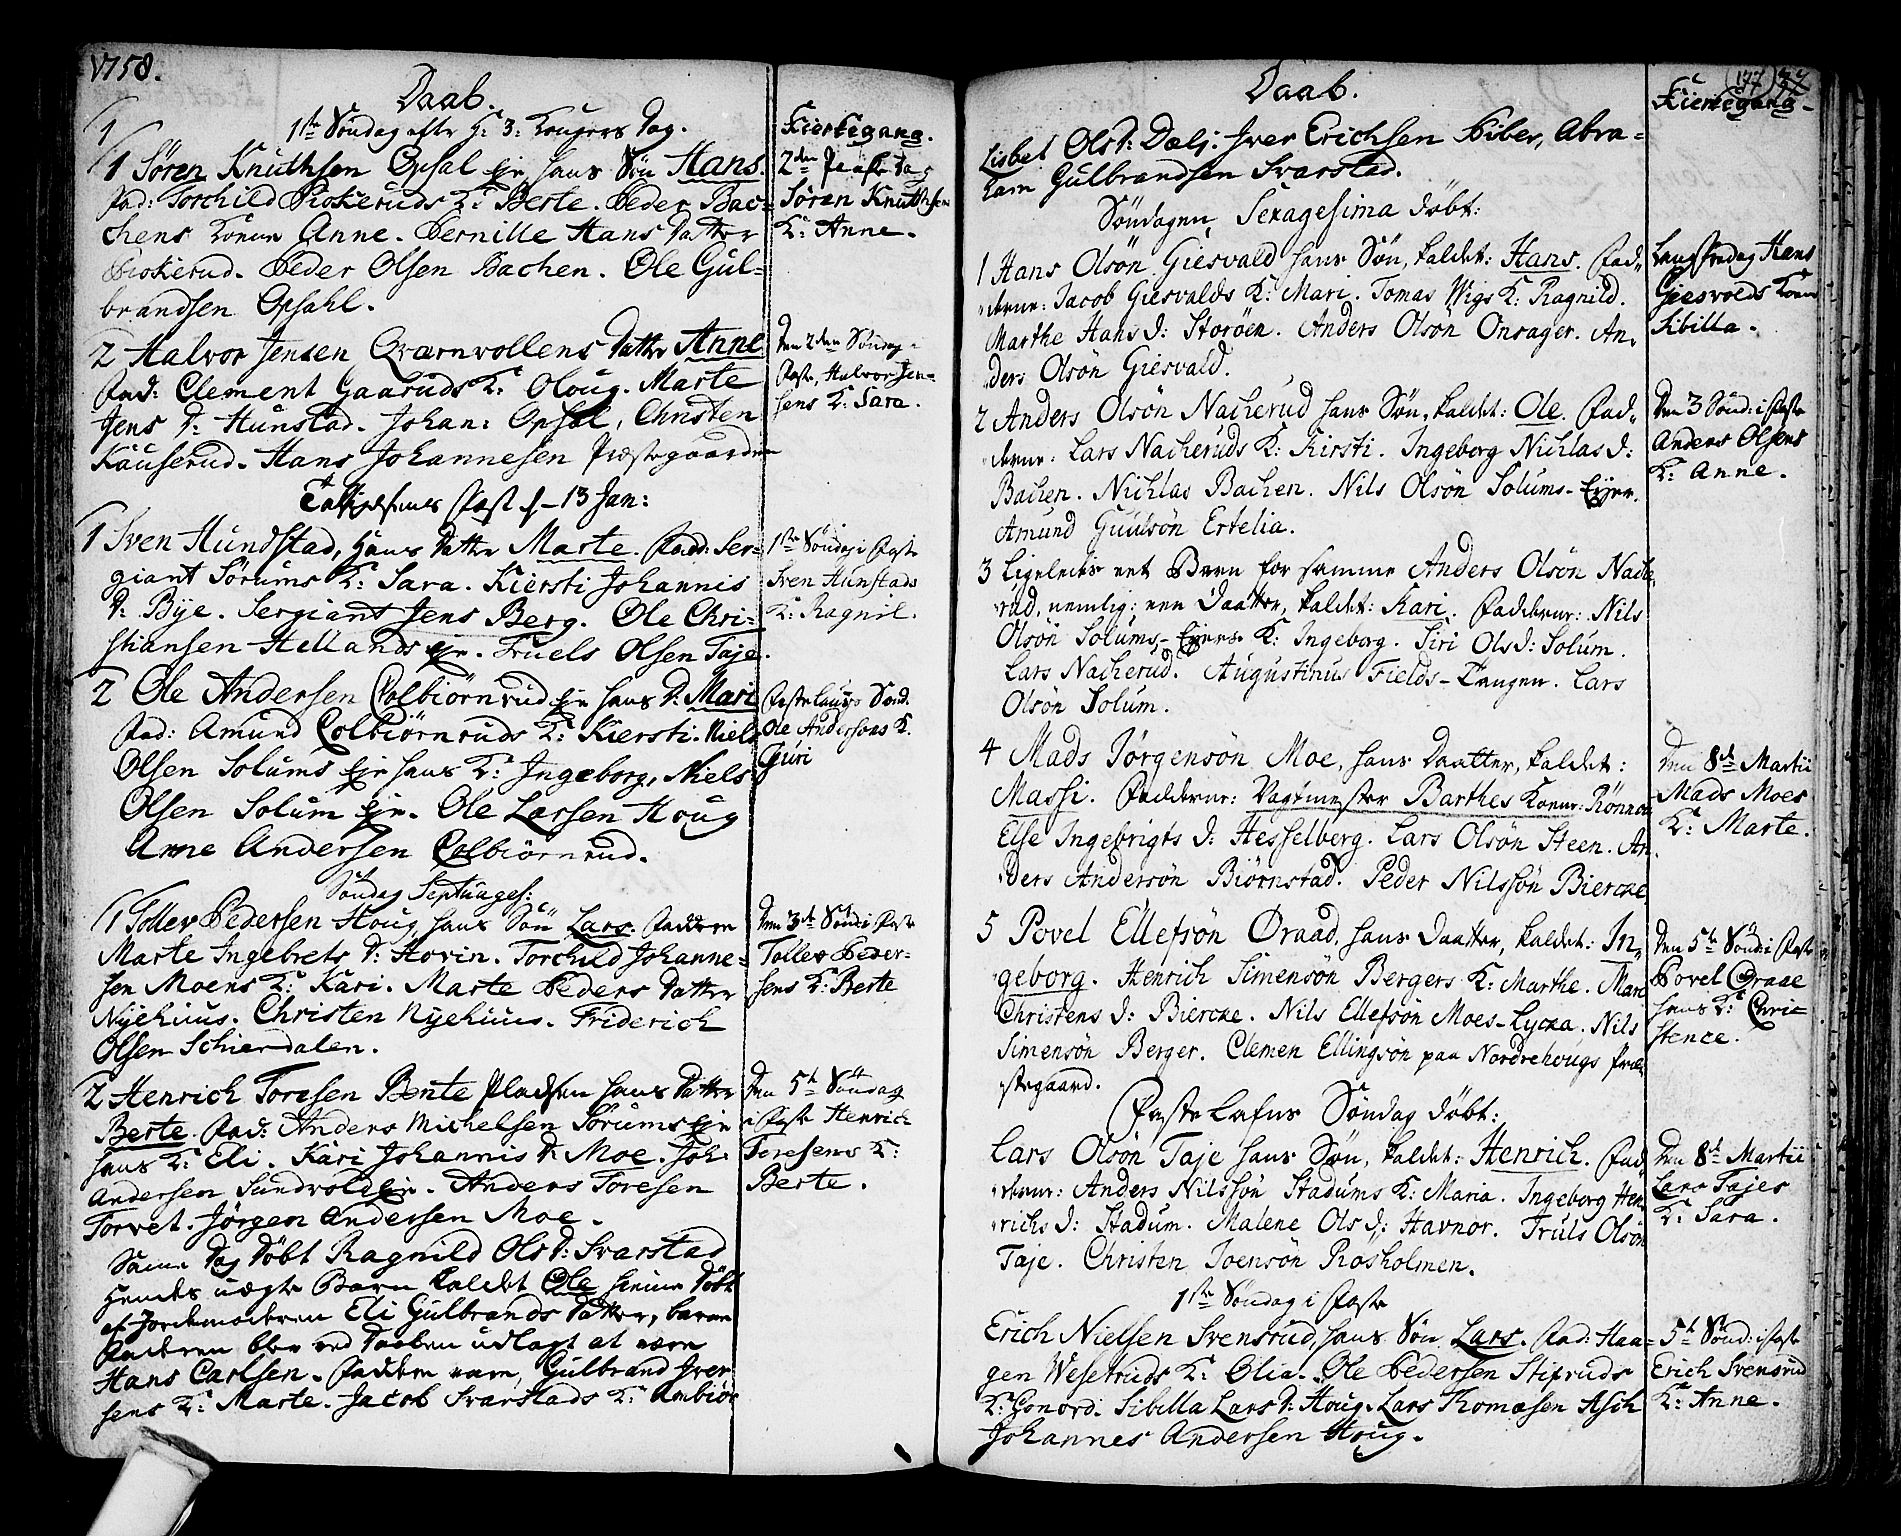 1758.
Daab.
1te Søndag efter H: 3: Kongers Dag.
1 Søren Knuthsen Opsal eje, hans Søn Hans.
Fad: Torchild Piokeruds K: Berte. Peder Bac-
chens Kone Anne. Pernille Hans Datter
Piokerud. Peder Olsen Bachen. Ole Gul-
brandsen Opsahl.
2 Halvor Jensen Qværnvollens Datter Anne
Fad: Clement Gaaruds K: Oloug. Marte
Jens D: Hunstad. Johan: Opsal, Christen
Kauserud. Hans Johannesen Præstegaarden
13 Jan:
1 Sven Hundstad, hans Datter Marte. Fadd: Ser-
giant Sørums K: Sara. Kiersti Johannis
D: Bÿe. Sergiant Jens Berg. Ole Chri-
sthansen Hellands eje. Truels Olsen Taje.
2 Ole Andersen Colbiørnrud eje hans D: Mari
Fad: Amund Colbiørnruds K: Kiersti. Niels
Olsen Solums eje hans K: Ingeborg, Niels
Olsen Solum eje. Ole Larsen Houg
Anne Andersen Colbiørnrud.
Søndag Septuages:
1 Tollev Pedersen Houg hans Søn Lars. Faddere
Marte Ingebrets D: Hovin. Torchild Johanne-
sen Moens K: Kari. Marte Peders Datter
Nÿehuus. Christen Nÿehuus. Friderich
Olsen Schierdalen.
2 Henrich Toresen Bente Pladsen hans Datter
Berte. Fad: Anders Michelsen Sørums eje
hans K: Eli. Kari Johannis D: Moe. Joh:
Andersen Sundvold eje. Anders Toresen
Torvet. Jörgen Andersen Moe.
Samme Dag Døbt Ragnild Ols D: Svarstad
hendes uægte Barn kaldet Ole hieme døbt
af Jordemoderen Eli Gulbrands Datter, barne
Faderen blev ved Daaben udlagt at være
Hans Carlsen. Faddere vare, Gulbrand Iver
sens K: Marte. Jacob Svarstads K: Ambiør
Kiertegang.
2den Paaske Dag
Søren Knuthsens
K: Anne.
Den 2den Søndag i
Faste, Halvor Jen-
sens K: Sara.
1te Søndag i Faste
Sven Hunstads
K: Ragnil.
Fastelauvs Sønd.
Ole Andersens K.
Guri
Den 3de Sønd: i Faste
Tollev Peder-
sens K: Berte
Den 5te Søndag
i Faste Henrich
Toresens K:
Berte.
177
Daab.
Kiertegang.
Lisbet Ols D: Dæli: Iver Erichsen Piber, Abra-
ham Gulbrandsen Svarstad.
Søndagen, Sexagesima døbt:
1 Hans Olsön Giesvald hans Søn, kaldet: Hans. Fad-
derne: Jacob Giesvalds K: Mari. Tomas Wigs K: Ragnild.
Marthe Hans D: Storöen. Anders Olsön Onsager. An-
ders Olsön Giesvald.
2 Anders Olsön Nacherud hans Søn, kaldet: Ole. Fad-
derne: Lars Nacheruds K: Kirsti. Ingeborg Nichlas D:
Bachen. Nichlas Bachen. Nils Olsön Solums-Ejer.
Amund Guulsön Ertelia.
3 Ligeledes eet Barn for samme Anders Olsön Nache-
rud, nemlig: een Daatter, kaldet: Kari. Fadderne: Nils
Olsön Solums-Ejers K: Ingeborg. Siri Ols D: Solum.
Lars Nacherud. Augustinus Fields-Tangen. Lars
Olsön Solum.
4 Mads Jörgensön Moe, hans Daatter, kaldet:
Massi. Fadderne: Vagtmester Barthes Kone: Rönnou
Else Ingebrigts D: Hesselberg. Lars Olsön Steen. An-
ders Andersön Biörnstad. Peder Nilssön Biercke
5 Povel Ellefsön Øraad, hans Daatter, kaldet: In-
geborg. Henrich Simensön Bergers K: Marthe. Mari
Christens D: Biercke. Nils Ellefsön Moes-Lycka. Nils
Simensön Berger. Clemen Ellingsön paa Nordrehougs Præ-
stegaard.
Faste Lafns Søndag döbt:
Lars Olsön Taje hans Søn, kaldet: Henrich. Fad-
derne: Anders Nilssön Stadums K: Maria. Ingeborg Hen-
richs D: Stadum. Malene Ols D: Havnor. Truls Olsön
Taje. Christen Joensön Rosholmen.
1te Søndag i Faste
Erich Nielsen Svensrud, hans Søn Lars. Fad: Haa-
gen Wesetruds K: Olia. Ole Pedersen Stixruds
K: Gonord. Sibilla Lars D: Houg. Lars Thomæsen Ask
Johannes Andersen Houg.
Langfredag Hans
Giesvolds Kone
Sibilla.
Den 3 Sønd: i Faste
Anders Olsens
K: Anne.
Den 8de Martii
Mads Moes
K: Marte.
Den 5te Sønd: i Faste
Povel Øraae
hans K: Chri-
stence.
Den 8de Martii
Lars Tajes
K: Sara.
5te Sønd: i Faste
Erich Svensrud
K: Anne.